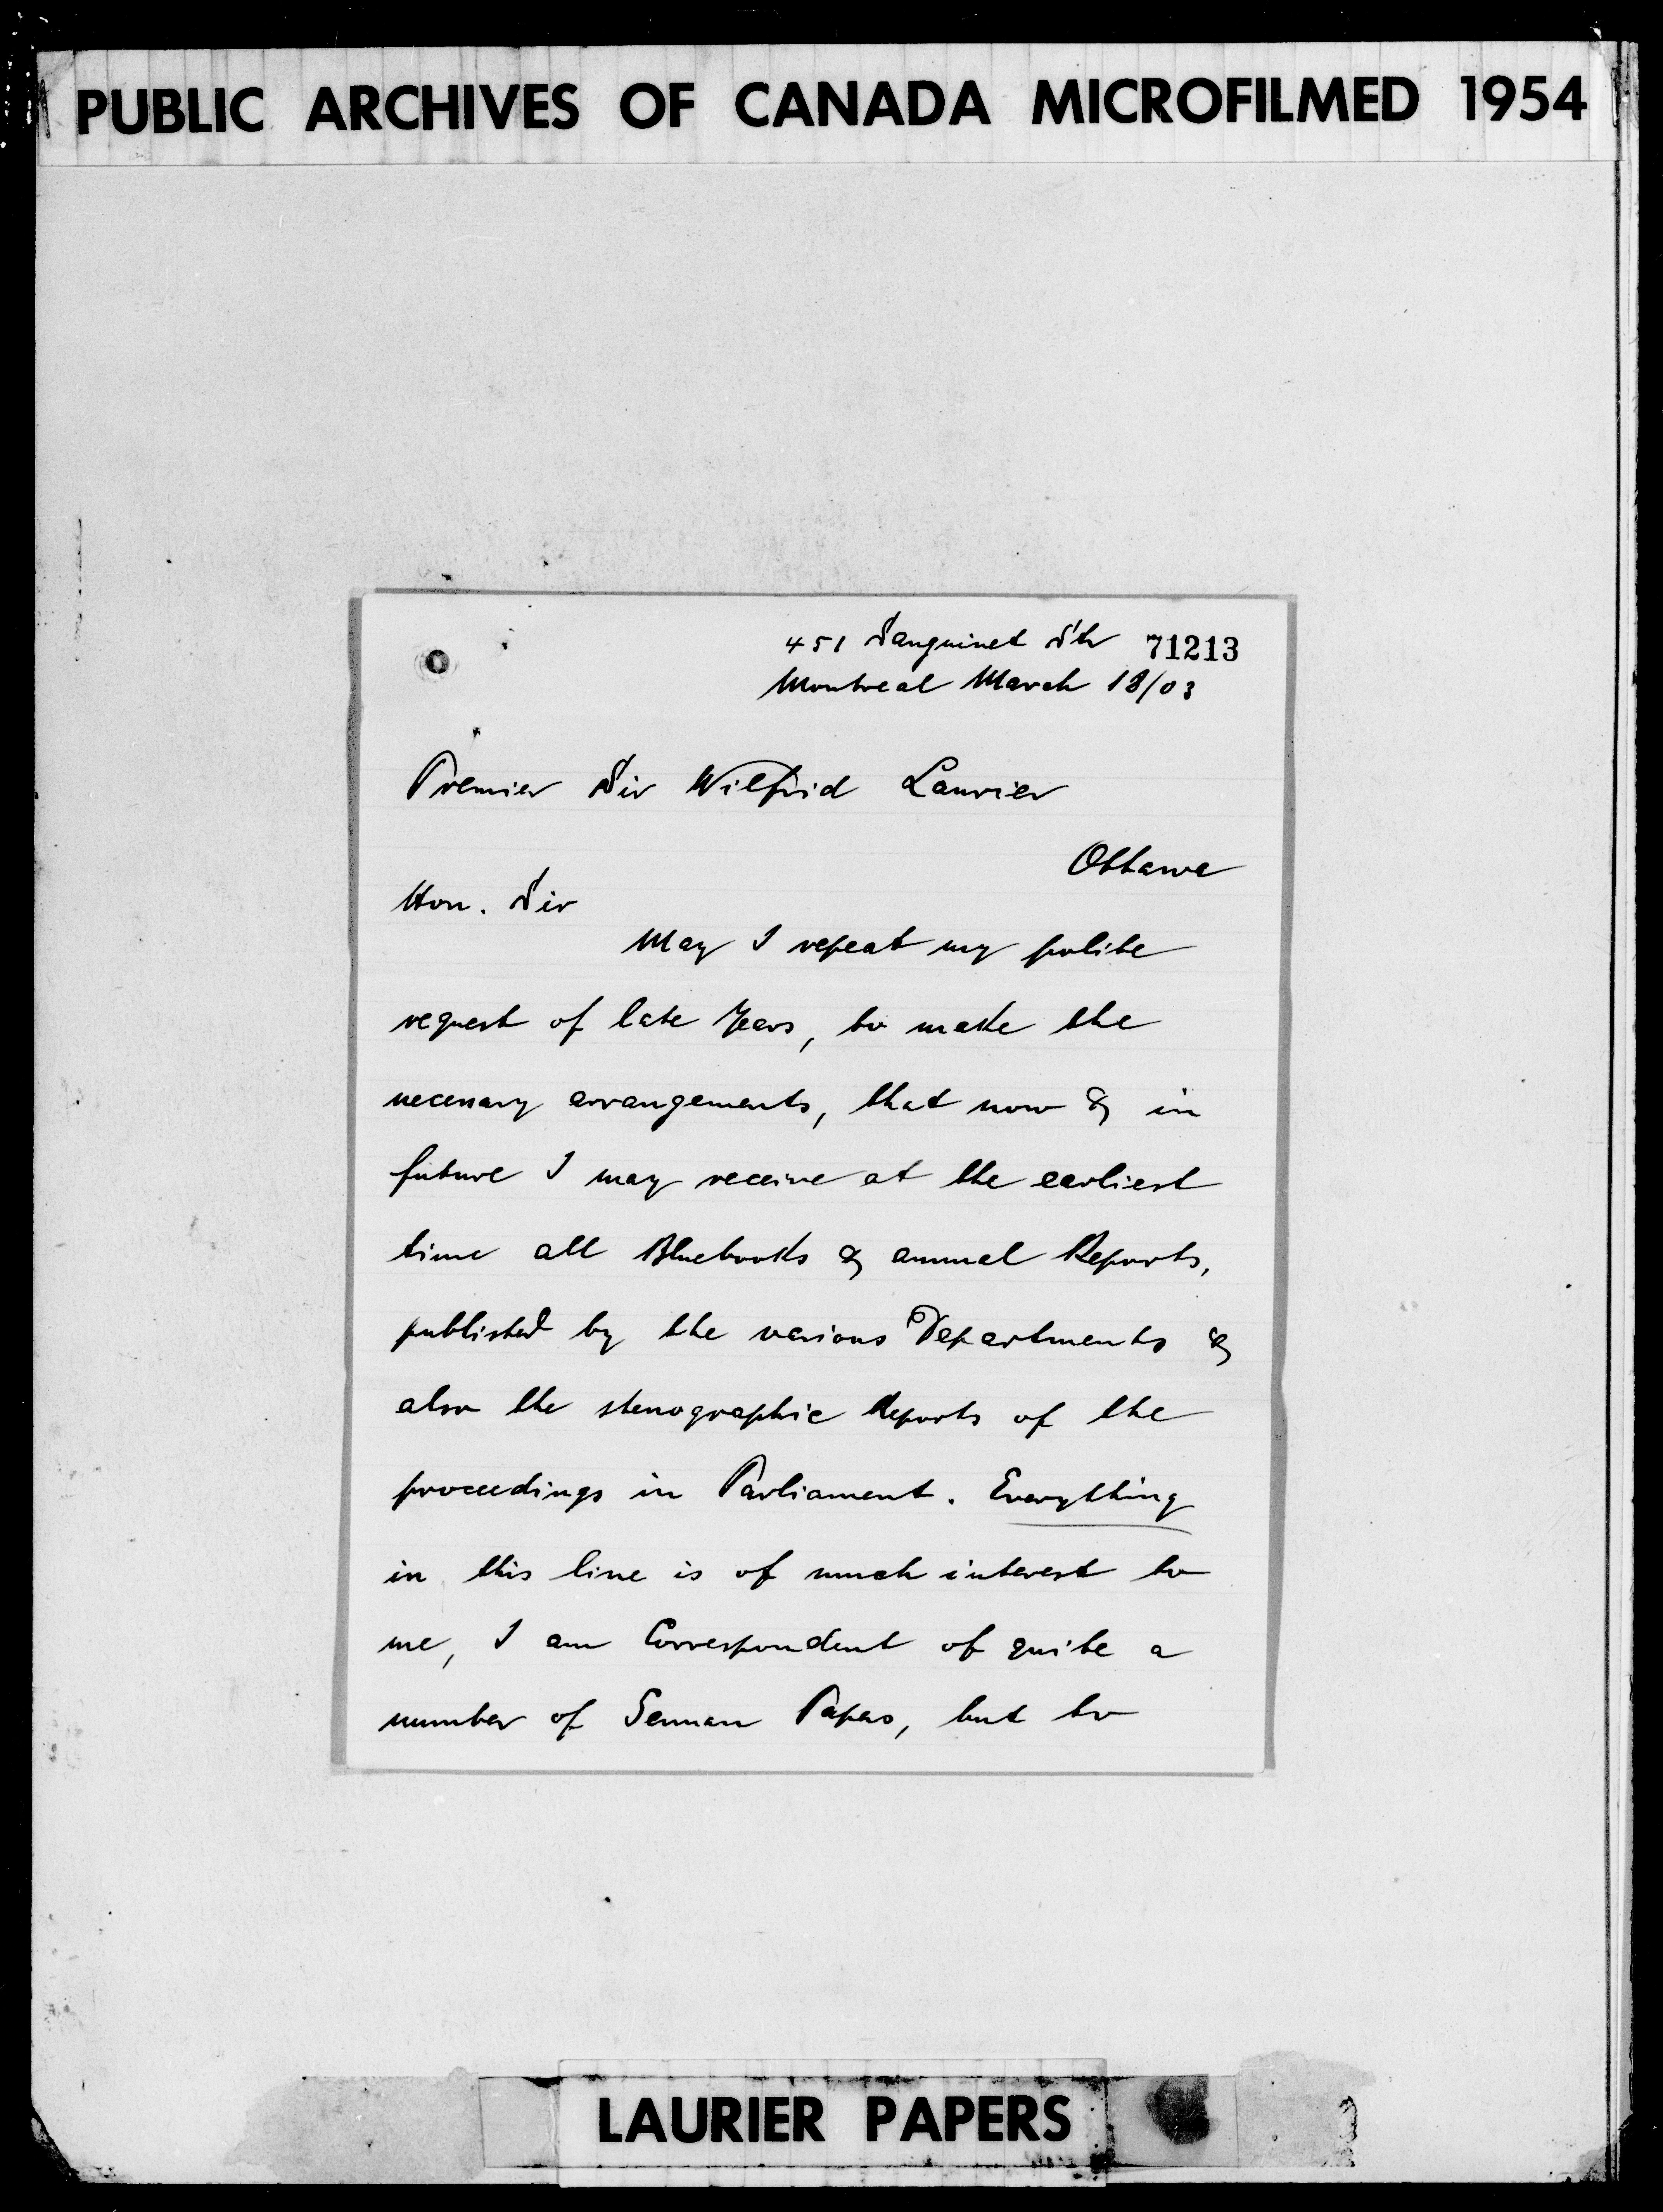 PUBLIC ARCHIVES OF CANADA MICROFILMED 1954
451 Sanguinet Str 71213
Montreal March 18/03
Premier Sir Wilfrid Laurier
Ottawa
Hon. Sir
May I repeat my polite
request of late Years, to make the
necessary arrangements, that now & in
future I may receive at the earliest
time all Bluebooks & annual Reports,
published by the various Departments &
also the stenographic Reports of the
proceedings in Parliament. Everything
in this line is of much interest to
me, I am Correspondent of quite a
number of German Papers, but to
LAURIER PAPERS